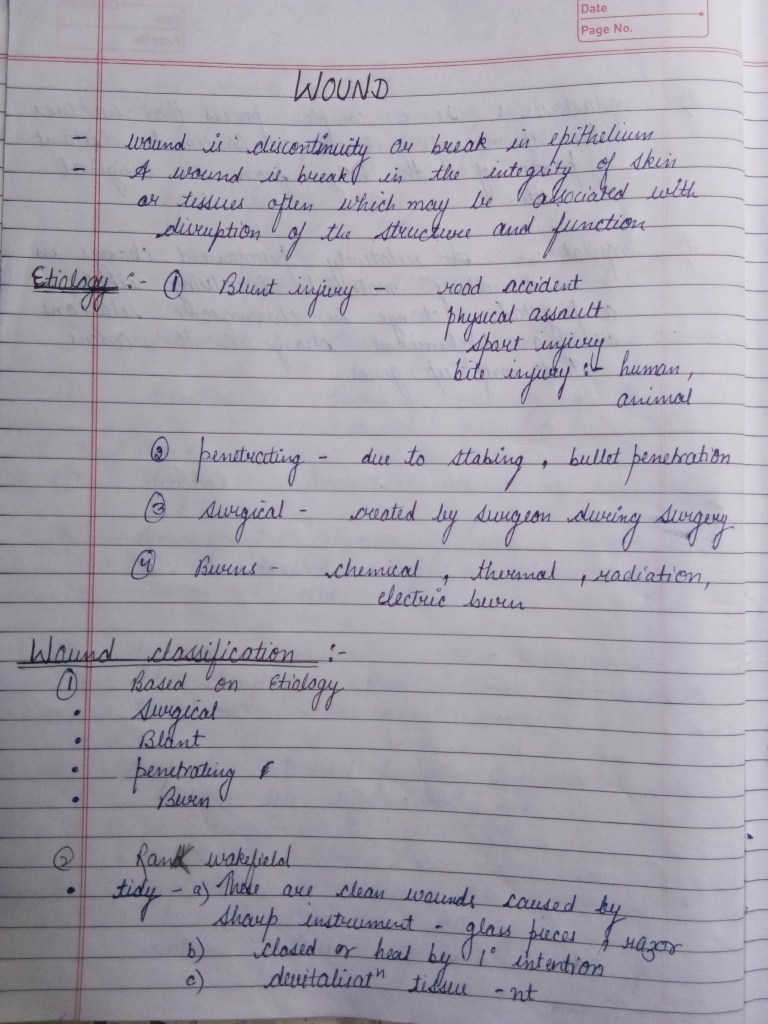 Date
Page No.
WOUND
- wound is discontinuity or break in epithelium
- A wound is break in the integrity of skin
or tissues often which may be associated with
disruption of the structure and function
Etiology :- ① Blunt injury - road accident
physical assault
sport injury
bite injury :- human,
animal
② penetrating - due to stabing, bullet penetration
③ surgical - created by surgeon during surgery
④ Burns - chemical, thermal, radiation,
electric burn
Wound classification :-
① Based on Etiology
• Surgical
• Blant
• penetrating
• Burn
② Rank wakefield
• tidy - a) These are clean wounds caused by
sharp instrument - glass pieces, razor
b) closed or heal by 1° intention
c) devitalisatⁿ tissue - nt